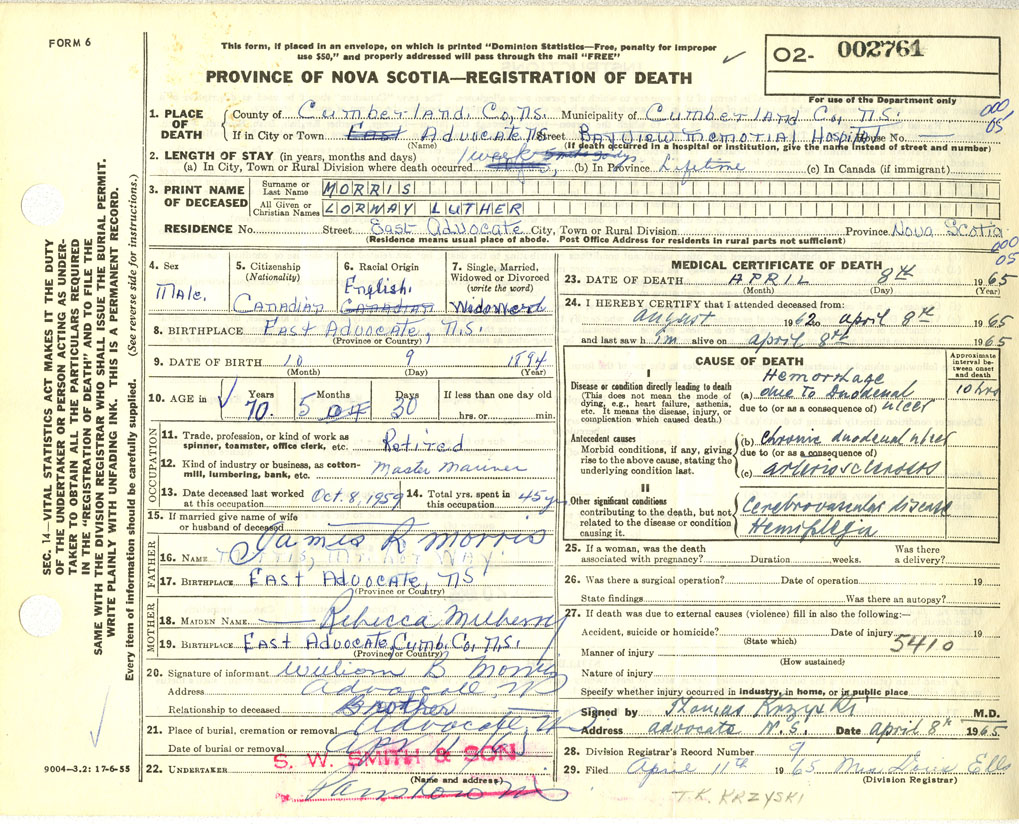 FORM 6
This form, if placed in an envelope, on which is printed "Dominion Statistics—Free, penalty for improper
use $50," and properly addressed will pass through the mail "FREE"
O2- 002761
PROVINCE OF NOVA SCOTIA—REGISTRATION OF DEATH
For use of the Department only
1. PLACE OF DEATH County of Cumberland Co, N.S. Municipality of Cumberland Co, N.S.
000,
05
If in City or Town East Advocate N.S. Street Bayview Memorial Hospital House No. —
(Name) (If death occurred in a hospital or institution, give the name instead of street and number)
2. LENGTH OF STAY (in years, months and days) 1 week
(a) In City, Town or Rural Division where death occurred (b) In Province Lifetime (c) In Canada (if immigrant)
3. PRINT NAME OF DECEASED Surname or Last Name MORRIS
All Given or Christian Names LORMAY LUTHER
RESIDENCE No. Street East Advocate City, Town or Rural Division Province Nova Scotia
(Residence means usual place of abode. Post Office Address for residents in rural parts not sufficient)
000
05
4. Sex 5. Citizenship (Nationality) 6. Racial Origin 7. Single, Married, Widowed or Divorced (write the word)
Male. Canadian English. Canadian Widowed
8. BIRTHPLACE East Advocate, N.S.
(Province or Country)
9. DATE OF BIRTH 10 9 1894
(Month) (Day) (Year)
10. AGE in Years Months Days If less than one day old
70. 5 30 hrs. or min.
OCCUPATION
11. Trade, profession, or kind of work as spinner, teamster, office clerk, etc. Retired
12. Kind of industry or business, as cotton-mill, lumbering, bank, etc. Master Mariner
13. Date deceased last worked at this occupation Oct. 8, 1959 14. Total yrs. spent in this occupation 45 y
15. If married give name of wife or husband of deceased
FATHER
16. NAME James R Morris
17. BIRTHPLACE East Advocate, NS
(Province or Country)
MOTHER
18. MAIDEN NAME Rebecca
19. BIRTHPLACE East Advocate, Cumb. Co, N.S.
(Province or Country)
20. Signature of informant William B Morris
Address Advocate NS
Relationship to deceased Brother
21. Place of burial, cremation or removal Advocate N
Date of burial or removal
22. UNDERTAKER S. W. SMITH & SON
(Name and address)
MEDICAL CERTIFICATE OF DEATH
23. DATE OF DEATH APRIL 8th 1965
(Month) (Day) (Year)
24. I HEREBY CERTIFY that I attended deceased from:
August 1962 to april 8th 1965
and last saw h im alive on april 8th 1965
CAUSE OF DEATH
Approximate interval between onset and death
I
Disease or condition directly leading to death
(This does not mean the mode of dying, e.g., heart failure, asthenia, etc. It means the disease, injury, or complication which caused death.)
Hemorrhage
(a) due to Duodenal 10 hrs
due to (or as a consequence of) ulcer
Antecedent causes
Morbid conditions, if any, giving rise to the above cause, stating the underlying condition last.
(b) Chronic duodenal ulcer
due to (or as a consequence of)
(c) arteriosclerosis
II
Other significant conditions
contributing to the death, but not related to the disease or condition causing it.
Cerebrovascular disease
Hemiplegia
25. If a woman, was the death associated with pregnancy? Duration weeks. Was there a delivery?
26. Was there a surgical operation? Date of operation 19
State findings Was there an autopsy?
27. If death was due to external causes (violence) fill in also the following:—
Accident, suicide or homicide? Date of injury 19
(State which)
5410
Manner of injury
(How sustained)
Nature of injury
Specify whether injury occurred in industry, in home, or in public place
Signed by Thomas Krzyski M.D.
Address advocate N.S. Date April 8th 1965
28. Division Registrar's Record Number 9
29. Filed April 11th 1965 Mrs Ells
(Division Registrar)
T.K. KRZYSKI
SEC. 14—VITAL STATISTICS ACT MAKES IT THE DUTY
OF THE UNDERTAKER OR PERSON ACTING AS UNDER-
TAKER TO OBTAIN ALL THE PARTICULARS REQUIRED
IN THE "REGISTRATION OF DEATH" AND TO FILE THE
SAME WITH THE DIVISION REGISTRAR WHO SHALL ISSUE THE BURIAL PERMIT.
WRITE PLAINLY WITH UNFADING INK. THIS IS A PERMANENT RECORD.
Every item of information should be carefully supplied. (See reverse side for instructions.)
9004—3.2: 17-6-55